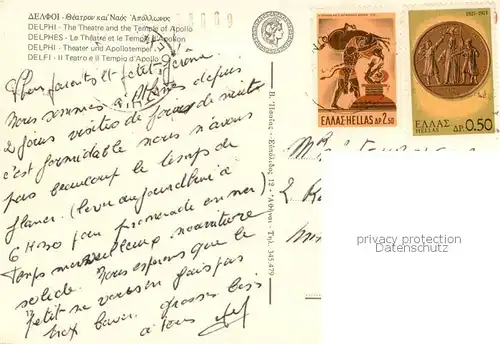 ΔΕΛΦΟΙ - Θέατρον καί Ναός Ἀπόλλωνος
DELPHI - The Theatre and the Temple of Apollo
DELPHES - Le Théâtre et le Temple d'Apollon
DELPHI - Theater und Apollotempel
DELFI - Il Teatro e il Tempio d'Apollo
Chers parents et petit Jérôme
Nous sommes à Athènes depuis
2 jours visites de jours de nuit
c'est formidable nous n'avons
pas beaucoup le temps de
flaner. (levée aujourd'hui à
6 H30 pour promenade en mer)
Temps merveilleux nourriture
solide. Nous espérons que le
petit ne vous en fais pas
trop baver. grosses bises
à tous
Ἀθῆναι - Τηλ. 345.479
ΕΛΛΑΣ-HELLAS ΔΡ 2.50
1821-1971
ΕΛΛΑΣ
HELLAS
ΔΡ. 0.50
privacy protection
www.oldthing.de